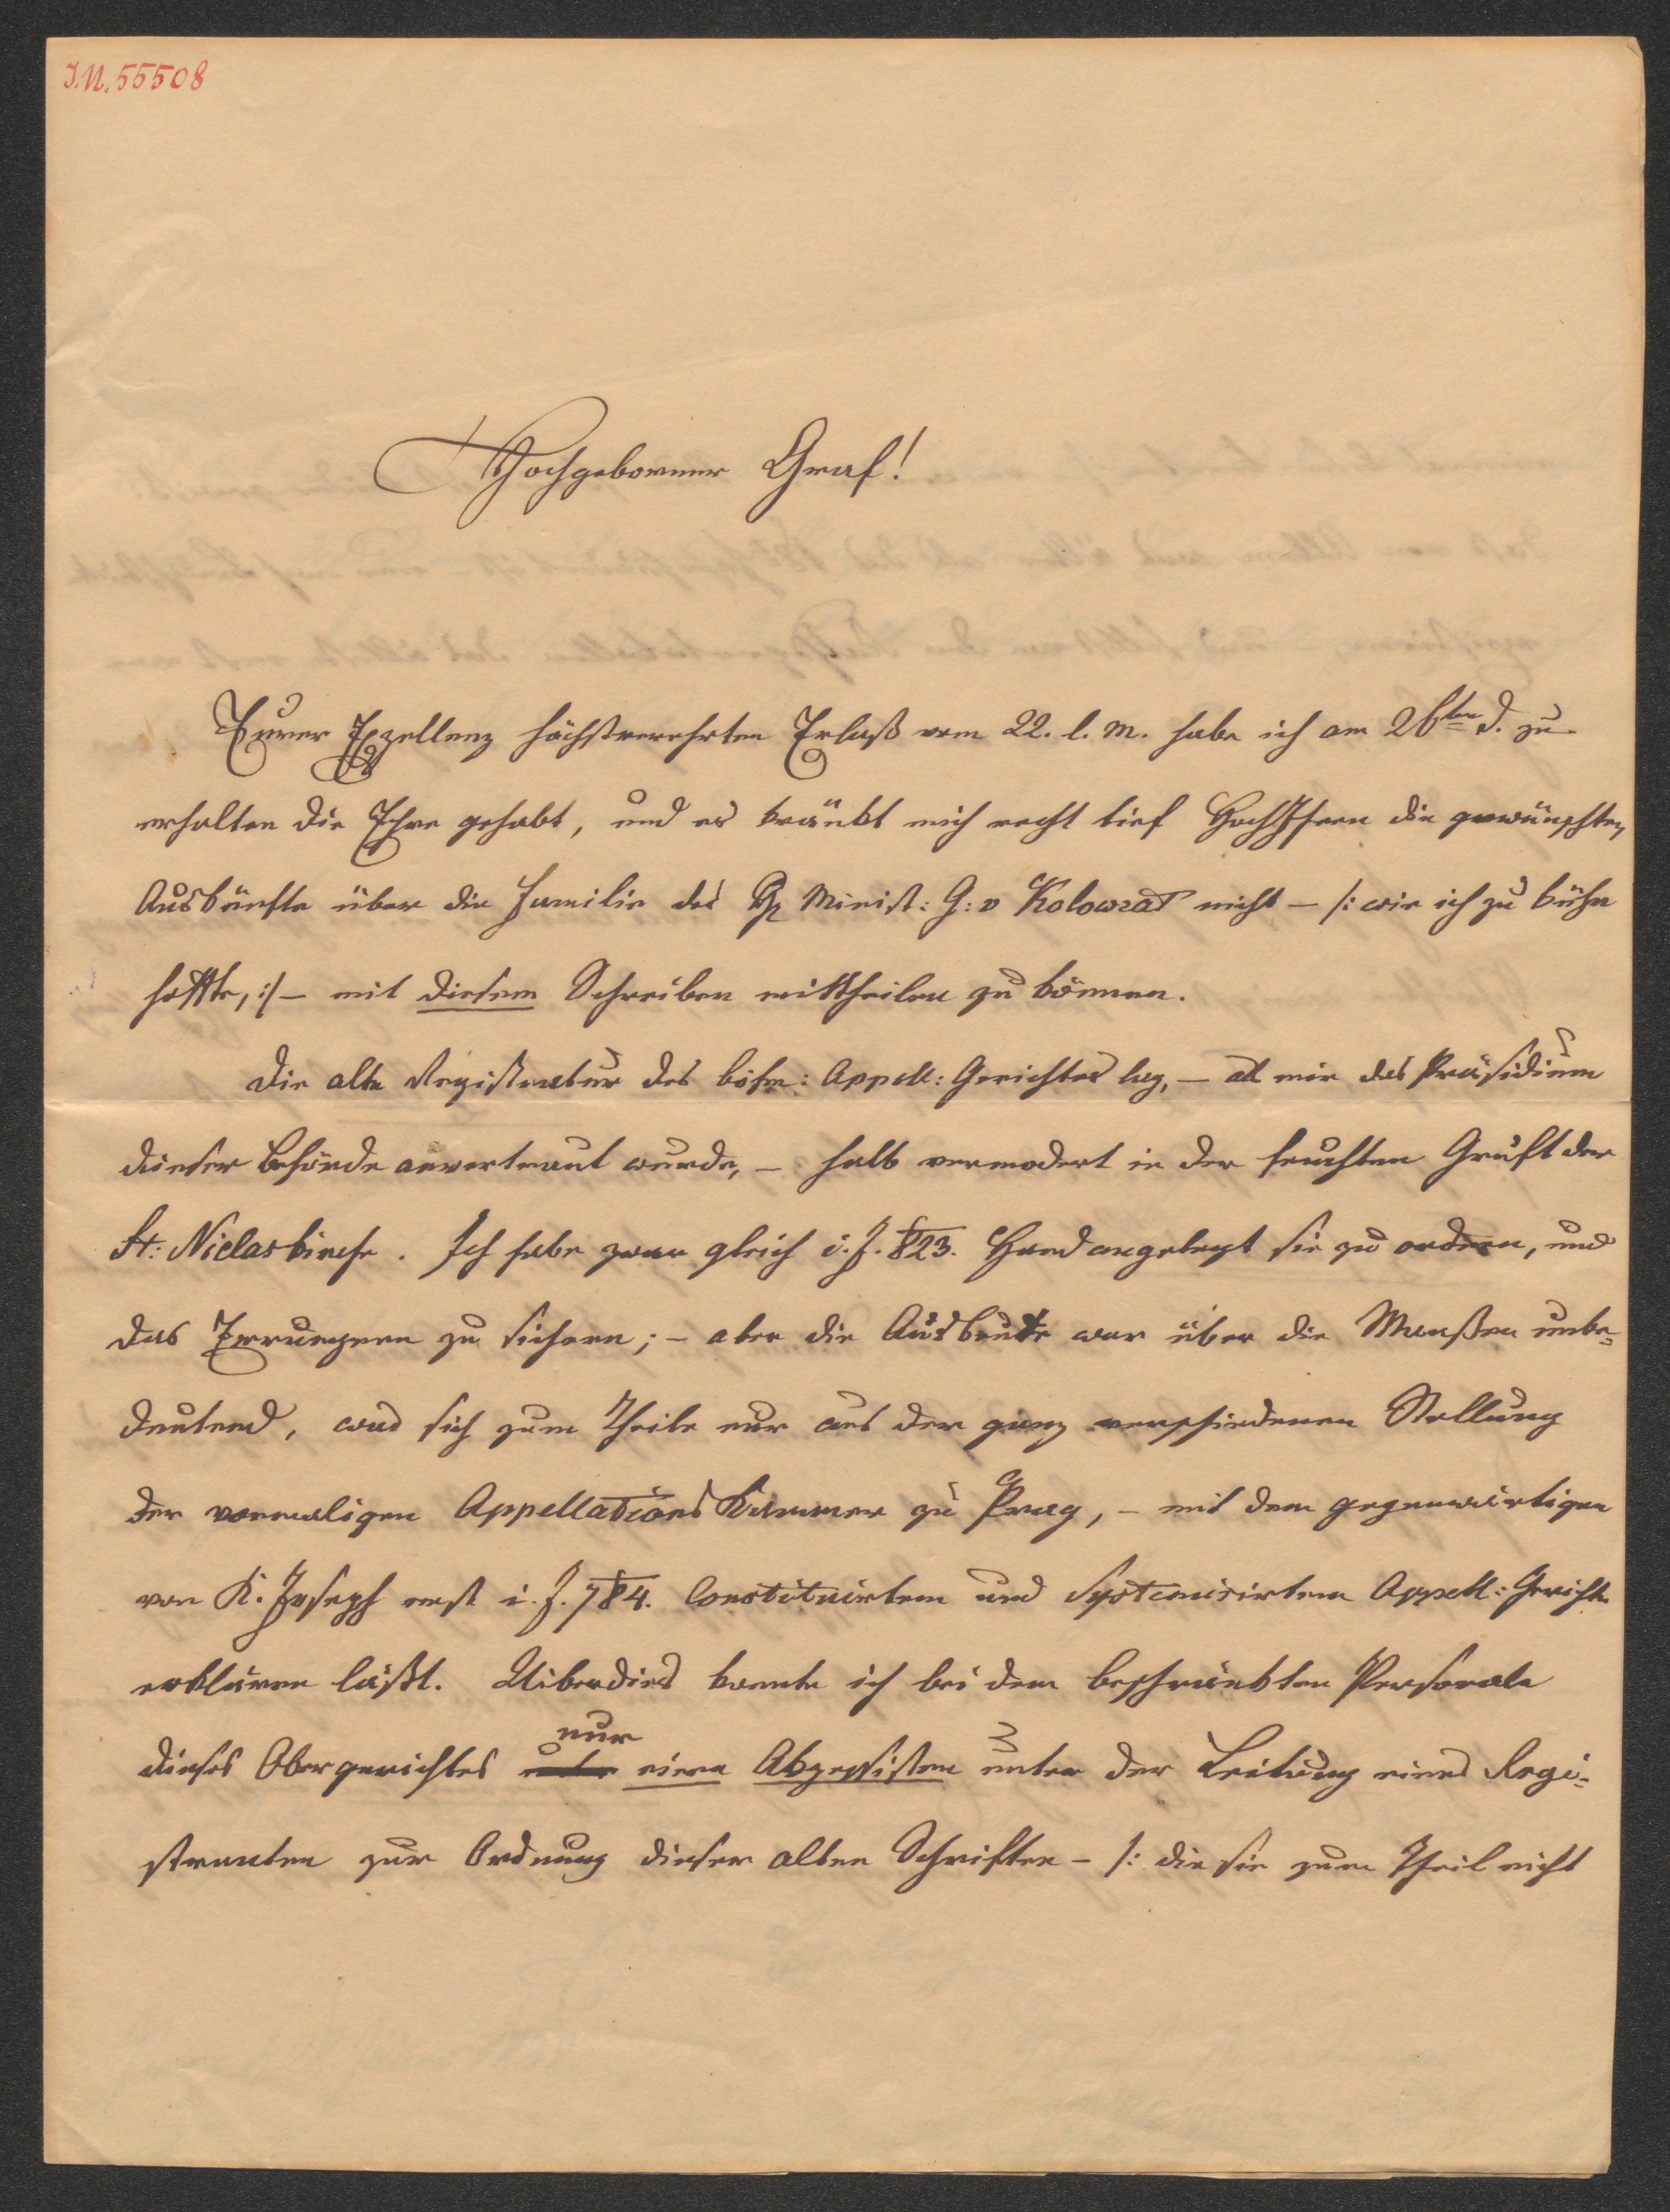 J.N. 55508
Hochgeborner Graf!
Eurer Exzellenz höchstverehrten Erlaß vom 22. l. M. habe ich am 26ten d. zu
erhalten die Ehre gehabt, und es kränkt mich recht tief HochIhnen die gewünschten
Auskünfte über die Familie des Minist: G: v Kolowrat nicht – /: wie ich zu kühn
hoffte, :/ – mit diesem Schreiben mittheilen zu können.
Die alte Registratur des böhm: Appell: Gerichtes lag, – als mir das Präsidium
dieser Behörde anvertraut wurde, – halb vermodert in der feuchten Gruft der
St: Niclaskirche. Ich habe zwar gleich i. J. 823. Hand angelegt sie zu ordnen, und
das Errungene zu sichern; – aber die Ausbeute war über die Maaßen unbe=
deutend, was sich zum Theile nur aus der ganz verschiedenen Stellung
der vormaligen Appellations Kammer zu Prag, – mit dem gegenwärtigen
von K. Joseph erst i. J. 784. Constituirtem und Systemisirtem Appell: Gericht
erklären läßt. Uiberdies konnte ich bei dem beschränkten Personale
dieses Obergerichtes nur einen Akzessisten unter der Leitung eines Regi=
stranten zur Ordnung dieser alten Schriften – /: die sie zum Theil nicht